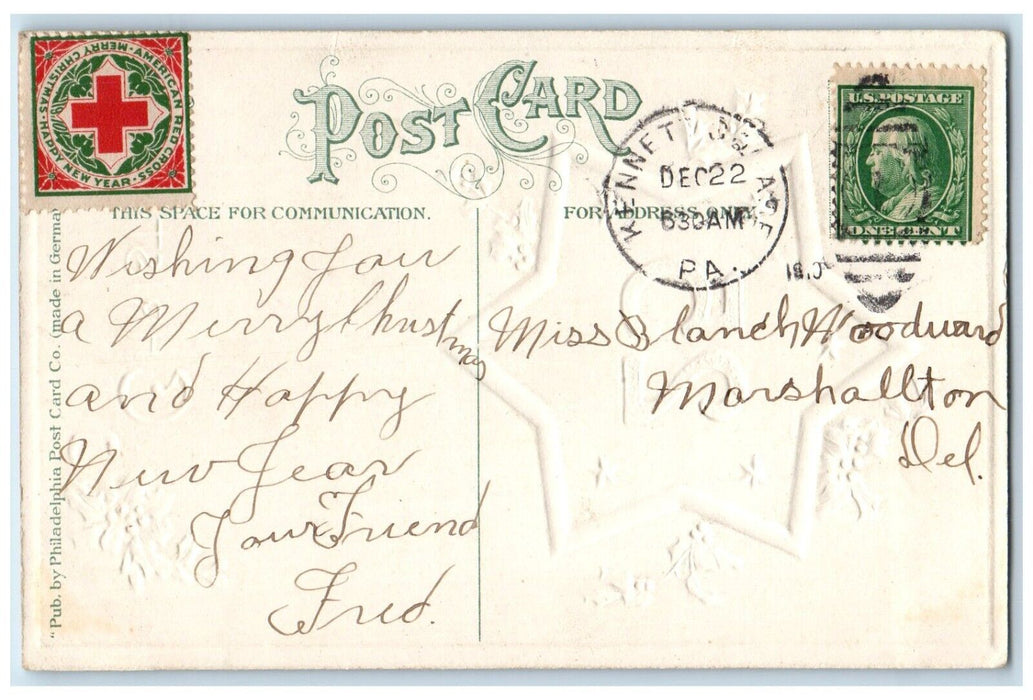 AMERICAN RED CROSS · HAPPY NEW YEAR · MERRY CHRISTMAS
POST CARD
THIS SPACE FOR COMMUNICATION.
FOR ADDRESS ONLY.
KENNETT SQUARE
DEC 22
630 AM
PA.
U.S. POSTAGE
ONE CENT
Wishing You
a Merry Christ
mas
and Happy
New Year
Your Friend
Fred.
Miss Blanch Woodward
Marshallton
Del.
"Pub. by Philadelphia Post Card Co. (made in Germa